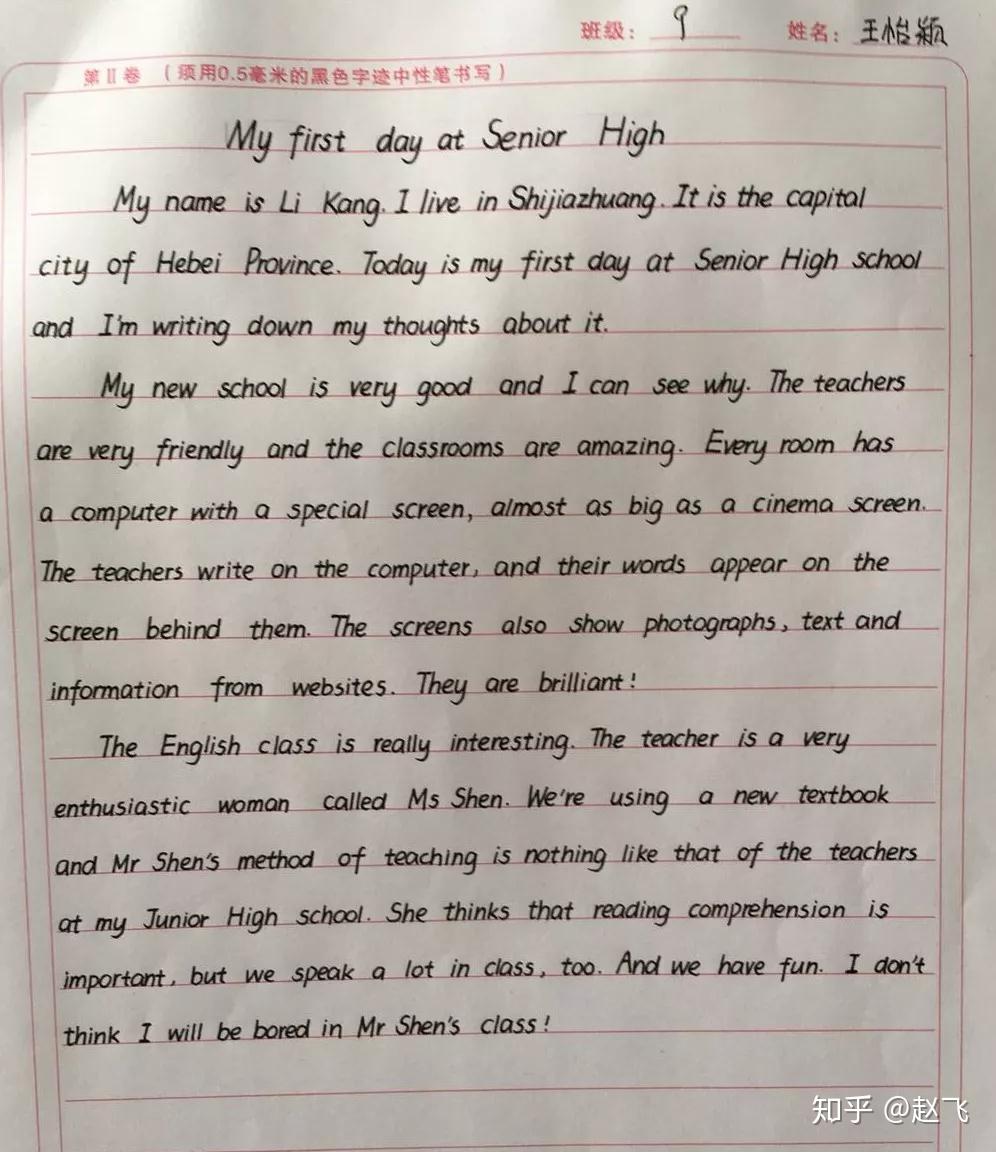 班级： 9 姓名： 王怡颖
第Ⅱ卷 （须用0.5毫米的黑色字迹中性笔书写）
My first day at Senior High
My name is Li Kang. I live in Shijiazhuang. It is the capital
city of Hebei Province. Today is my first day at Senior High school
and I'm writing down my thoughts about it.
My new school is very good and I can see why. The teachers
are very friendly and the classrooms are amazing. Every room has
a computer with a special screen, almost as big as a cinema screen.
The teachers write on the computer, and their words appear on the
screen behind them. The screens also show photographs, text and
information from websites. They are brilliant!
The English class is really interesting. The teacher is a very
enthusiastic woman called Ms Shen. We're using a new textbook
and Mr Shen's method of teaching is nothing like that of the teachers
at my Junior High school. She thinks that reading comprehension is
important, but we speak a lot in class, too. And we have fun. I don't
think I will be bored in Mr Shen's class!
知乎 @赵飞